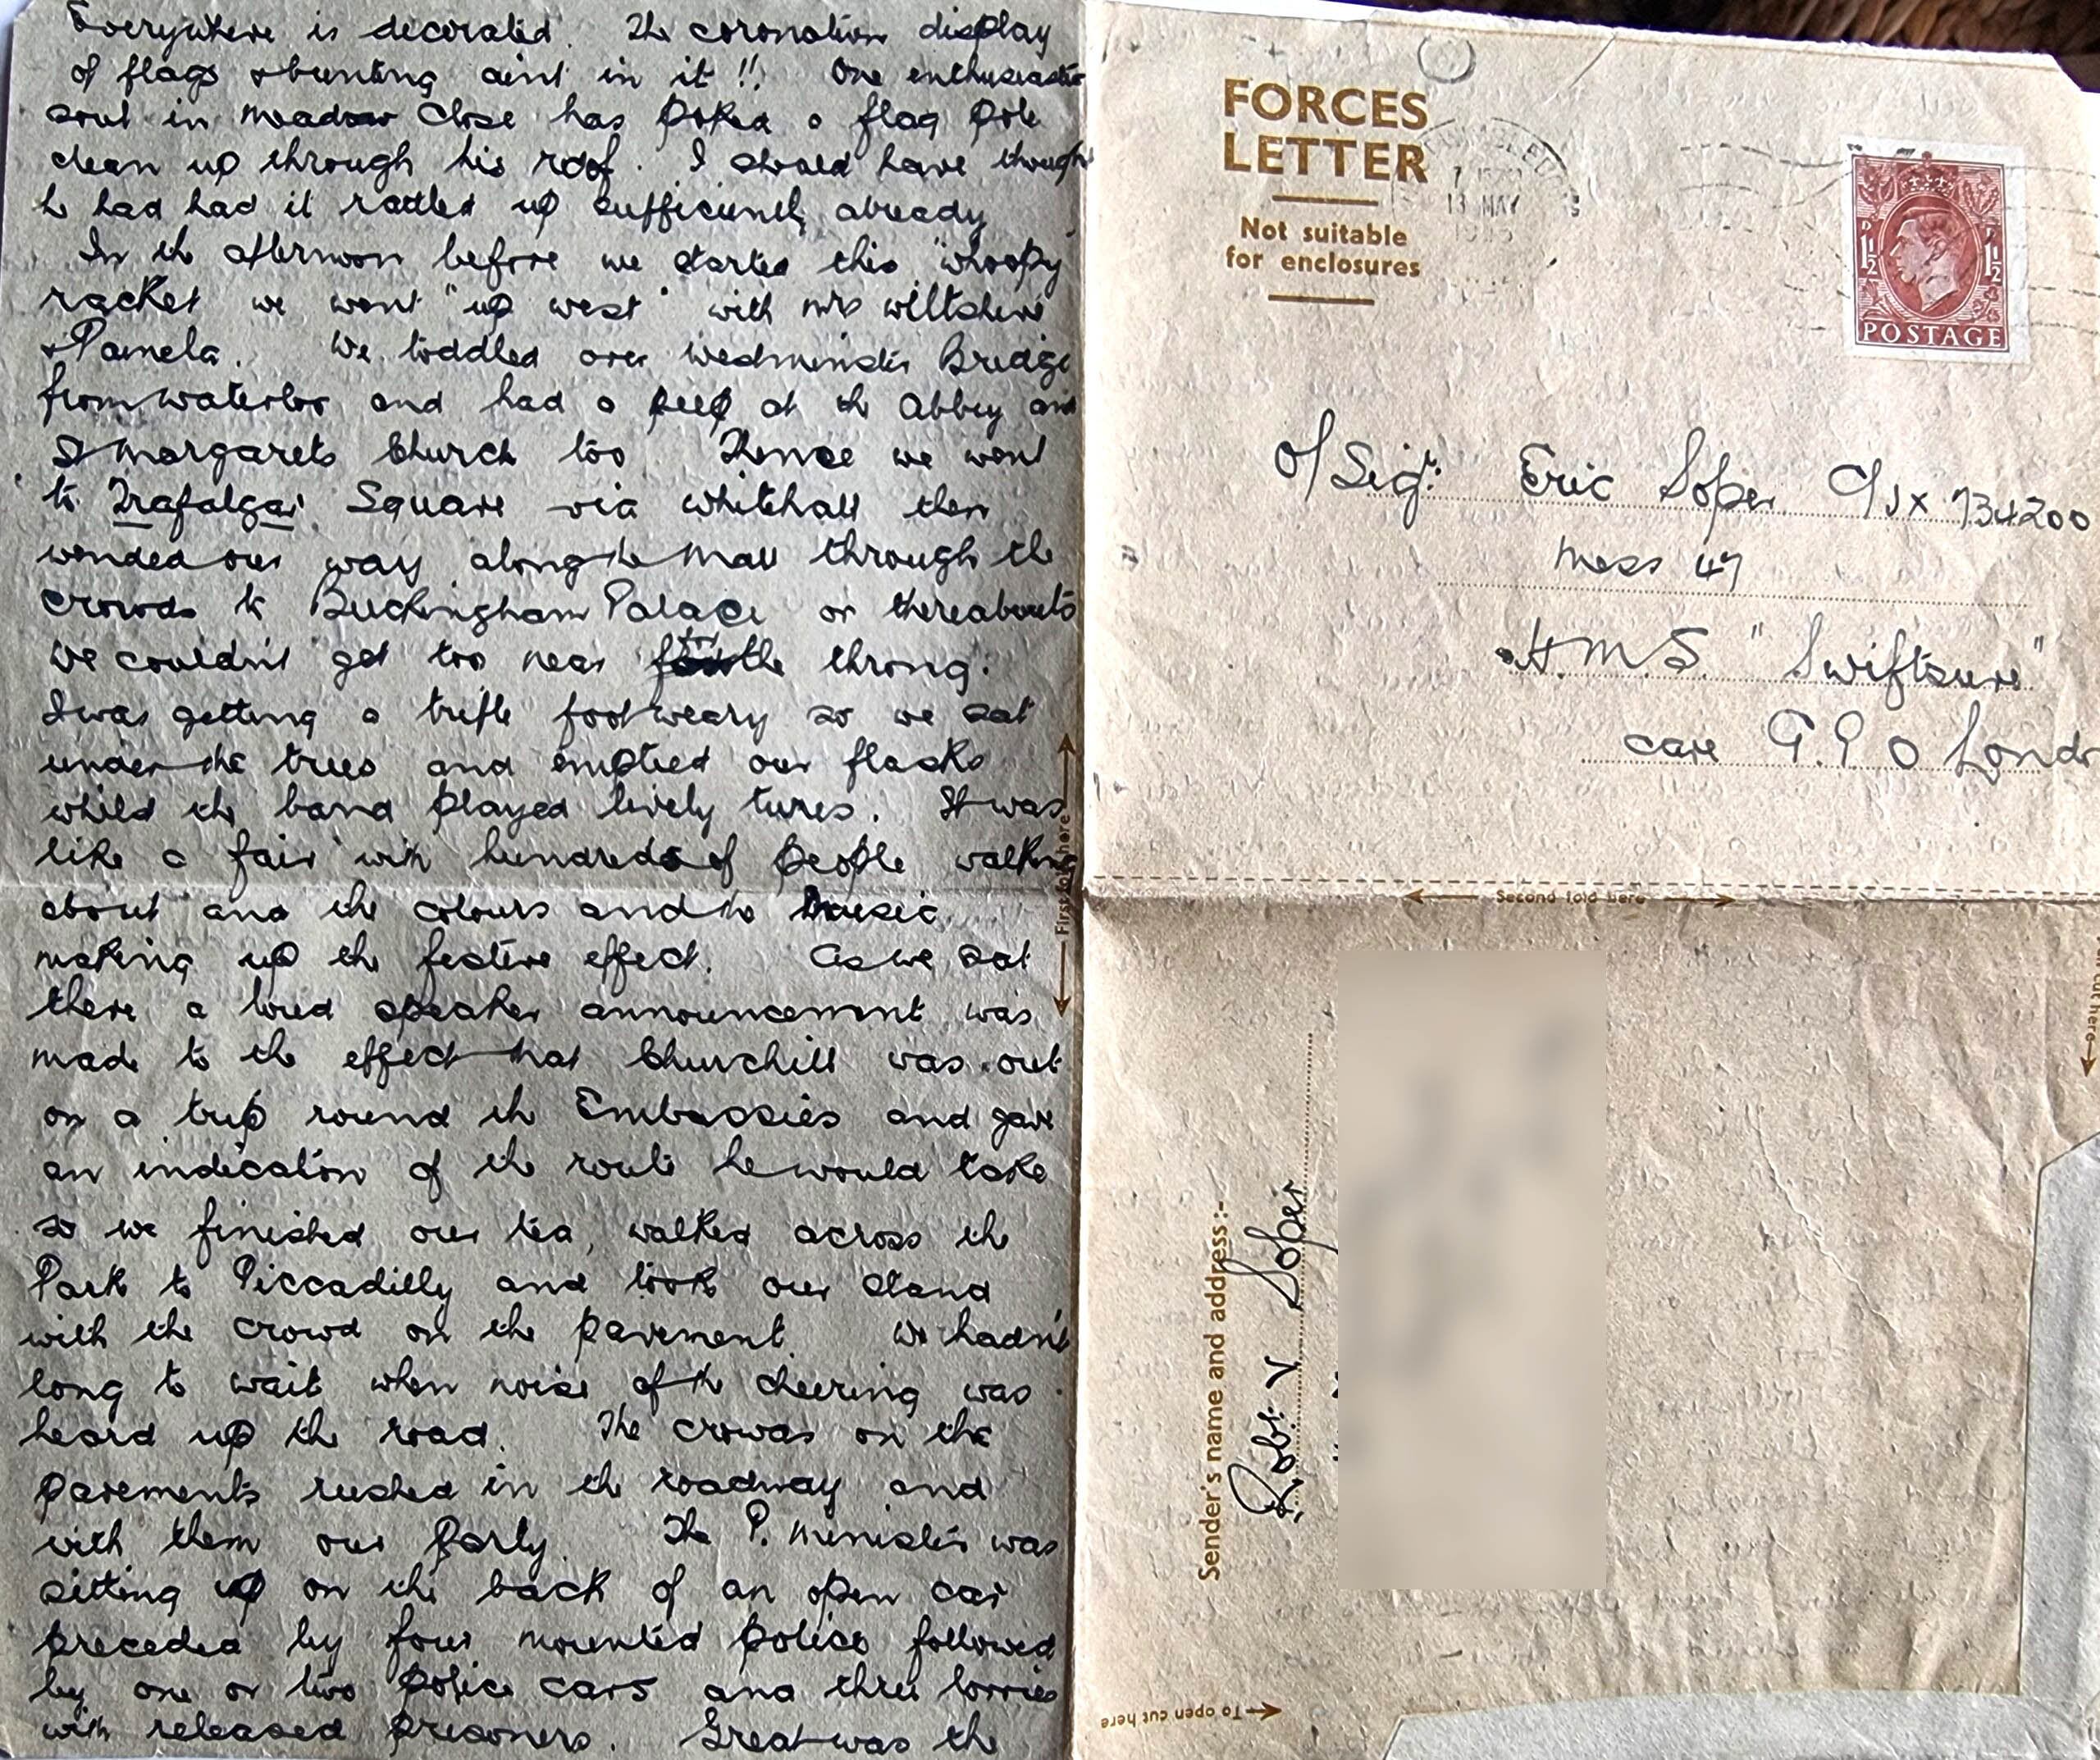 Everywhere is decorated. The coronation display
of flags & bunting aint in it!! One enthusiastic
soul in Meadow Close has poked a flag pole
clean up through his roof. I should have thought
he had had it rattled up sufficiently already
In the afternoon before we started this "whoopy"
racket we went "up west" with Mrs Wiltshire
& Pamela. We toddled over Westminster Bridge
from Waterloo and had a peep at the Abbey and
St Margarets Church too Thence we went
to Trafalgar Square via Whitehall then
wended our way along the Mall through the
crowds to Buckingham Palace or thereabouts
We couldn't get too near for the throng.
I was getting a trifle footweary so we sat
under the trees and emptied our flasks
whilst the band played lively tunes. It was
like a fair with hundreds of people walking
about and the colours and the music
making up the festive effect. As we sat
there a loud speaker announcement was
made to the effect that Churchill was out
on a trip round the Embassies and gave
an indication of the route he would take
so we finished our tea, walked across the
Park to Piccadilly and took our stand
with the crowd on the pavement. We hadn't
long to wait when noise of the cheering was
heard up the road. The crowds on the
pavements rushed in the roadway and
with them our party. The P. Minister was
sitting up on the back of an open car
preceded by four mounted police followed
by one or two police cars and three lorries
with released prisoners. Great was the
First fold here
FORCES
LETTER
Not suitable
for enclosures
13 MAY
P 1½ 1½ D
POSTAGE
O/Sigr. Eric Soper C/JX 734200
Mess 47
H.M.S. "Swiftsure"
care G.P.O London
Second fold here
Sender's name and address:-
Robt. V Soper
To open cut here
cut here